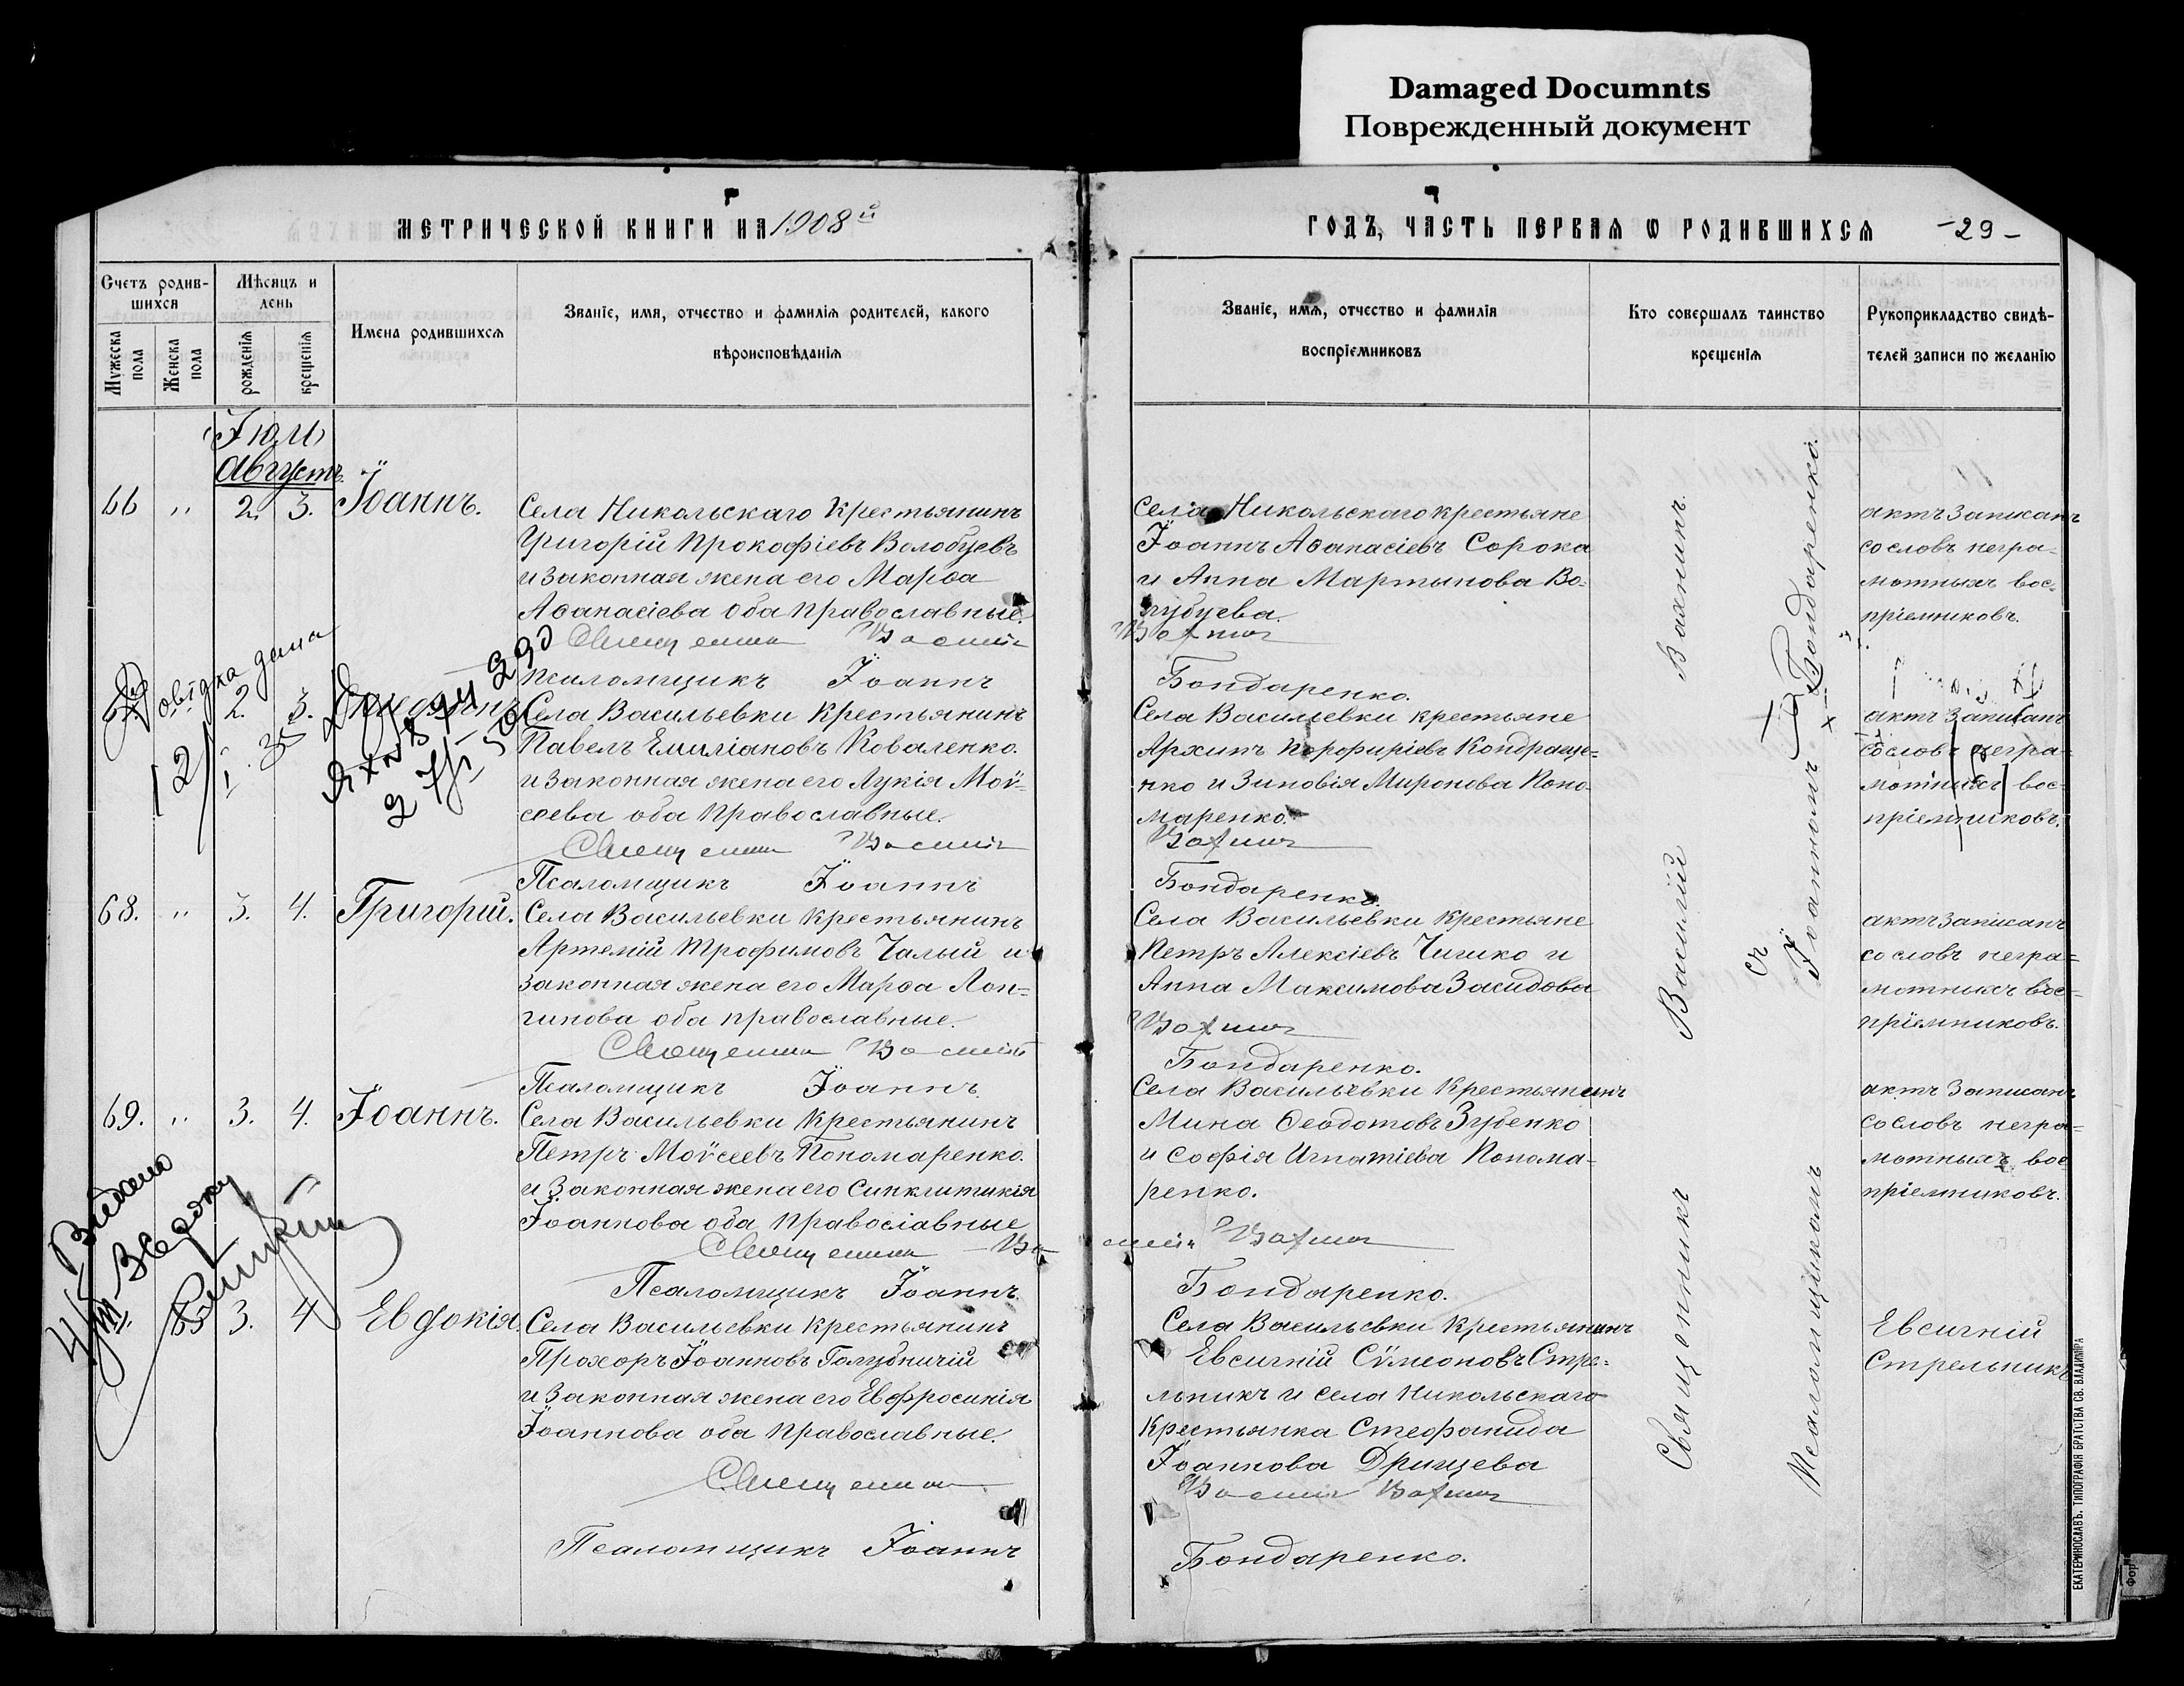 Damaged Documnts
Поврежденный документ
МЕТРИЧЕСКОЙ КНИГИ НА 1908й
ГОДЪ, ЧАСТЬ ПЕРВАЯ Ѡ РОДИВШИХСЯ
-29-
Счетъ родив-
шихся
Мужеска
пола
Женска
пола
Мѣсяцъ и
день
рожденія
крещенія
Имена родившихся
Званіе, имя, отчество и фамилія родителей, какого
вѣроисповѣданія
Званіе, имя, отчество и фамилія
воспріемниковъ
Кто совершалъ таинство
крещенія
Рукоприкладство свидѣ-
телей записи по желанію
Августъ
66 " 2. 3. Іоаннъ.
Села Никольскаго крестьянинъ
Григорій Прокофіевъ Волобуевъ
и законная жена его Марѳа
Аѳанасіева оба православные.
Священник Василій
псаломщикъ Іоаннъ
Села Никольскаго крестьяне
Іоаннъ Аѳанасіевъ Сорока
и Анна Мартынова Во-
лубуева.
Вахнин
Бондаренко.
актъ записанъ
со словъ негра-
мотныхъ вос-
пріемниковъ.
Довідка дана
2. 3.
Села Васильевки крестьянинъ
Павелъ Емиліановъ Коваленко.
и законная жена его Лукія Мої-
сеева оба православные.
Священник Василій
Псаломщикъ Іоаннъ
Села Васильевки крестьяне
Архипъ Порфиріевъ Кондраще-
нко и Зиновія Миронова Поно-
маренко.
Вахнин
Бондаренко.
актъ записанъ
со словъ негра-
мотныхъ вос-
пріемниковъ.
68. " 3. 4. Григорій.
Села Васильевки крестьянинъ
Артемій Трофимовъ Чалый и
законная жена его Марѳа Лон-
гинова оба православные.
Священник Василій
Псаломщикъ Іоаннъ.
Села Васильевки крестьяне
Петръ Алексіевъ Чигико и
Анна Максимова Засидова
Вахнин
Бондаренко.
актъ записанъ
со словъ негра-
мотныхъ вос-
пріемниковъ.
69. " 3. 4. Іоаннъ.
Села Васильевки крестьянинъ
Петръ Моѵсеевъ Пономаренко.
и законная жена его Синклитикія
Іоаннова оба православные
Священник Василій Вахнин
Псаломщикъ Іоаннъ.
Села Васильевки крестьянинъ
Мина Ѳеодотовъ Зубенко
и Софія Игнатіева Понома-
ренко.
Бондаренко.
актъ записанъ
со словъ негра-
мотныхъ вос-
пріемниковъ.
3. 4 Евдокія.
Села Васильевки крестьянинъ
Прохоръ Іоанновъ Голубничій
и законная жена его Евфросинія
Іоаннова оба православные.
Священник
Псаломщикъ Іоаннъ
Села Васильевки крестьянинъ
Евсигній Сѵмеоновъ Стре-
льникъ и села Никольскаго
крестьянка Стефанида
Іоаннова Дрищева
Василій Вахнин
Бондаренко.
Евсигній
Стрельникъ
Священникъ Василій Вахнинъ.
съ
Псаломщикомъ Іоанномъ Бондаренко.
ЕКАТЕРИНОСЛАВЪ. ТИПОГРАФІЯ БРАТСТВА СВ. ВЛАДИМІРА